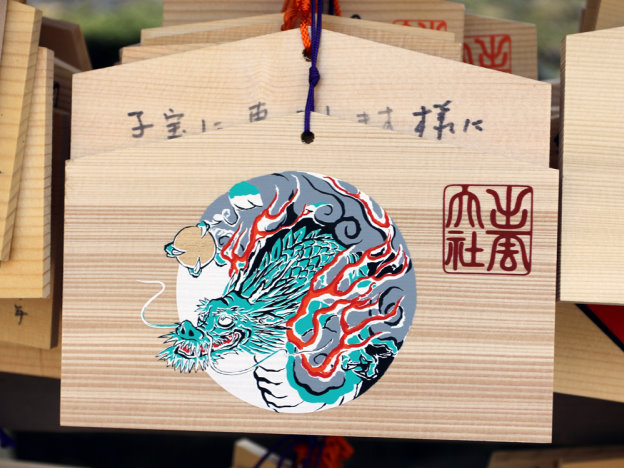 子宝に恵まれます様に
出雲大社